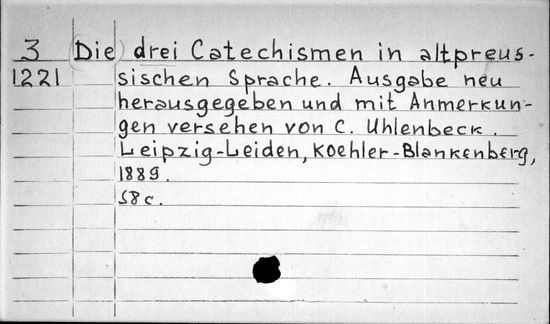 3 (Die) drei Catechismen in altpreus-
1221 sischen Sprache. Ausgabe neu
herausgegeben und mit Anmerkun-
gen versehen von C. Uhlenbeck.
Leipzig-Leiden, Koehler-Blankenberg,
1889.
58 c.